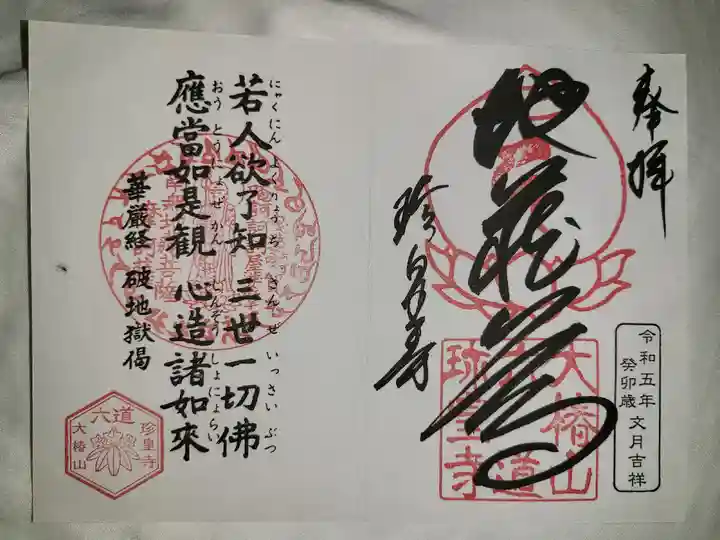 奉拝
地蔵尊
珍皇寺
大椿山
六道
珍皇寺
令和五年
癸卯歳 文月吉祥
若人欲了知 三世一切佛
にゃくにんよくりょうち さんぜいっさいぶつ
應當如是觀 心造諸如來
おうとうにょぜかん しんぞうしょにょらい
華厳経 破地獄偈
六道
珍皇寺
大椿山